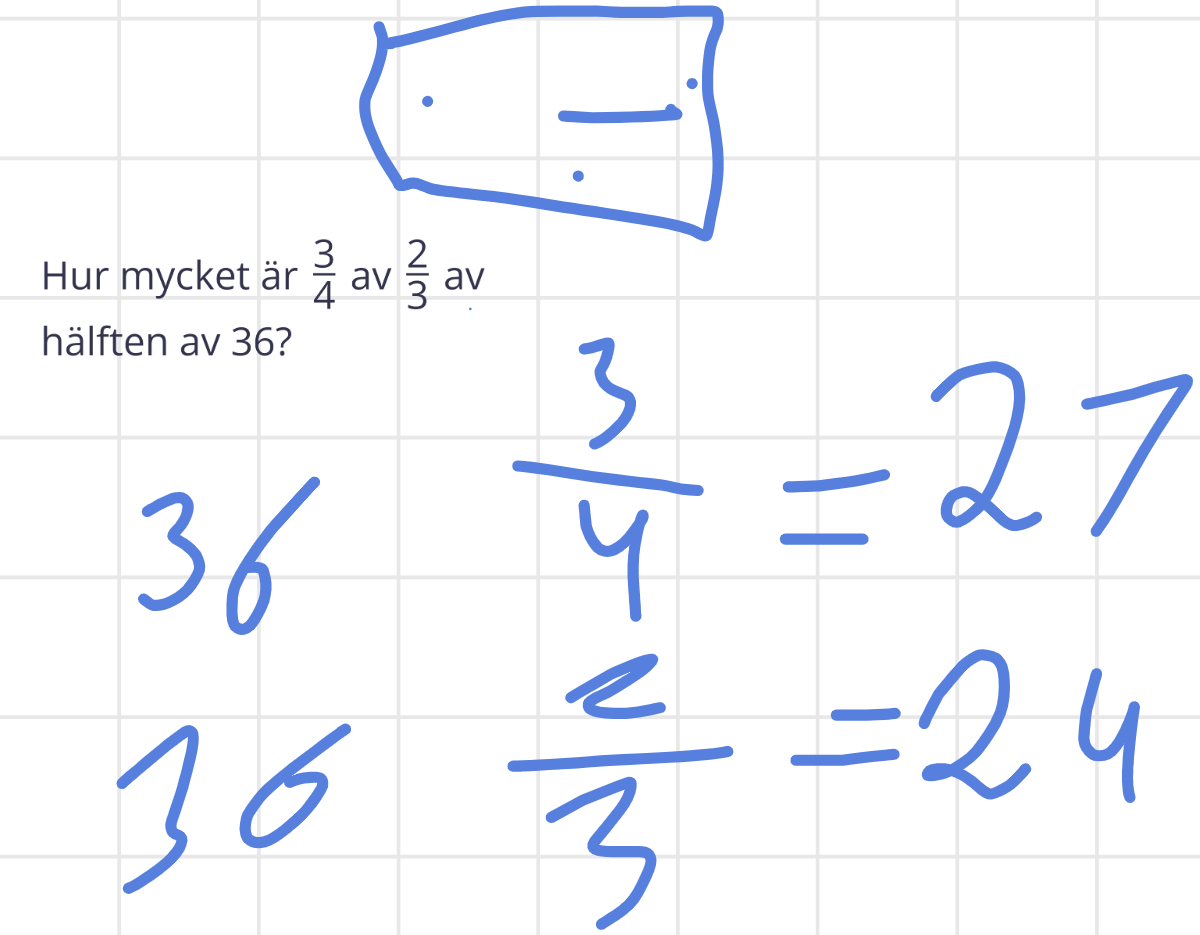 Hur mycket är 3/4 av 2/3 av
hälften av 36?
36 3/4 = 27
36 2/3 = 24